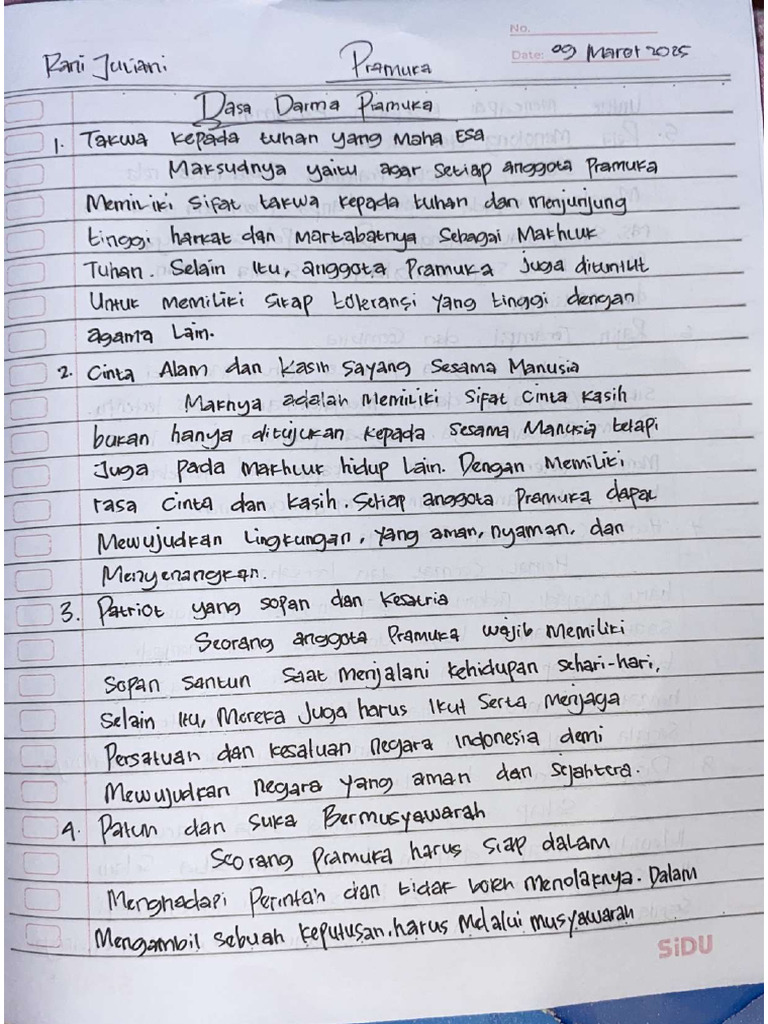 No.
Rani Juliani Pramuka Date: 09 Maret 2025
Dasa Darma Pramuka
1. Takwa kepada tuhan yang Maha Esa
Maksudnya yaitu agar setiap anggota Pramuka
Memiliki sifat takwa kepada tuhan dan menjunjung
tinggi harkat dan martabatnya sebagai Makhluk
Tuhan. Selain itu, anggota Pramuka juga dituntut
Untuk memiliki sikap toleransi yang tinggi dengan
agama Lain.
2. Cinta Alam dan kasih sayang Sesama Manusia
Maknya adalah memiliki sifat cinta kasih
bukan hanya ditujukan kepada sesama Manusia tetapi
Juga pada makhluk hidup Lain. Dengan Memiliki
rasa cinta dan kasih. Setiap anggota Pramuka dapat
Mewujudkan Lingkungan, yang aman, nyaman, dan
Menyenangkan.
3. Patriot yang sopan dan kesatria
Seorang anggota Pramuka wajib Memiliki
Sopan santun saat menjalani kehidupan sehari-hari,
Selain itu, Mereka Juga harus Ikut Serta menjaga
Persatuan dan kesatuan negara Indonesia demi
Mewujudkan negara yang aman dan sejahtera.
4. Patuh dan suka Bermusyawarah
Seorang Pramuka harus siap dalam
Menghadapi Perintah dan tidak boleh Menolaknya. Dalam
Mengambil sebuah keputusan, harus Melalui musyawarah
SiDU